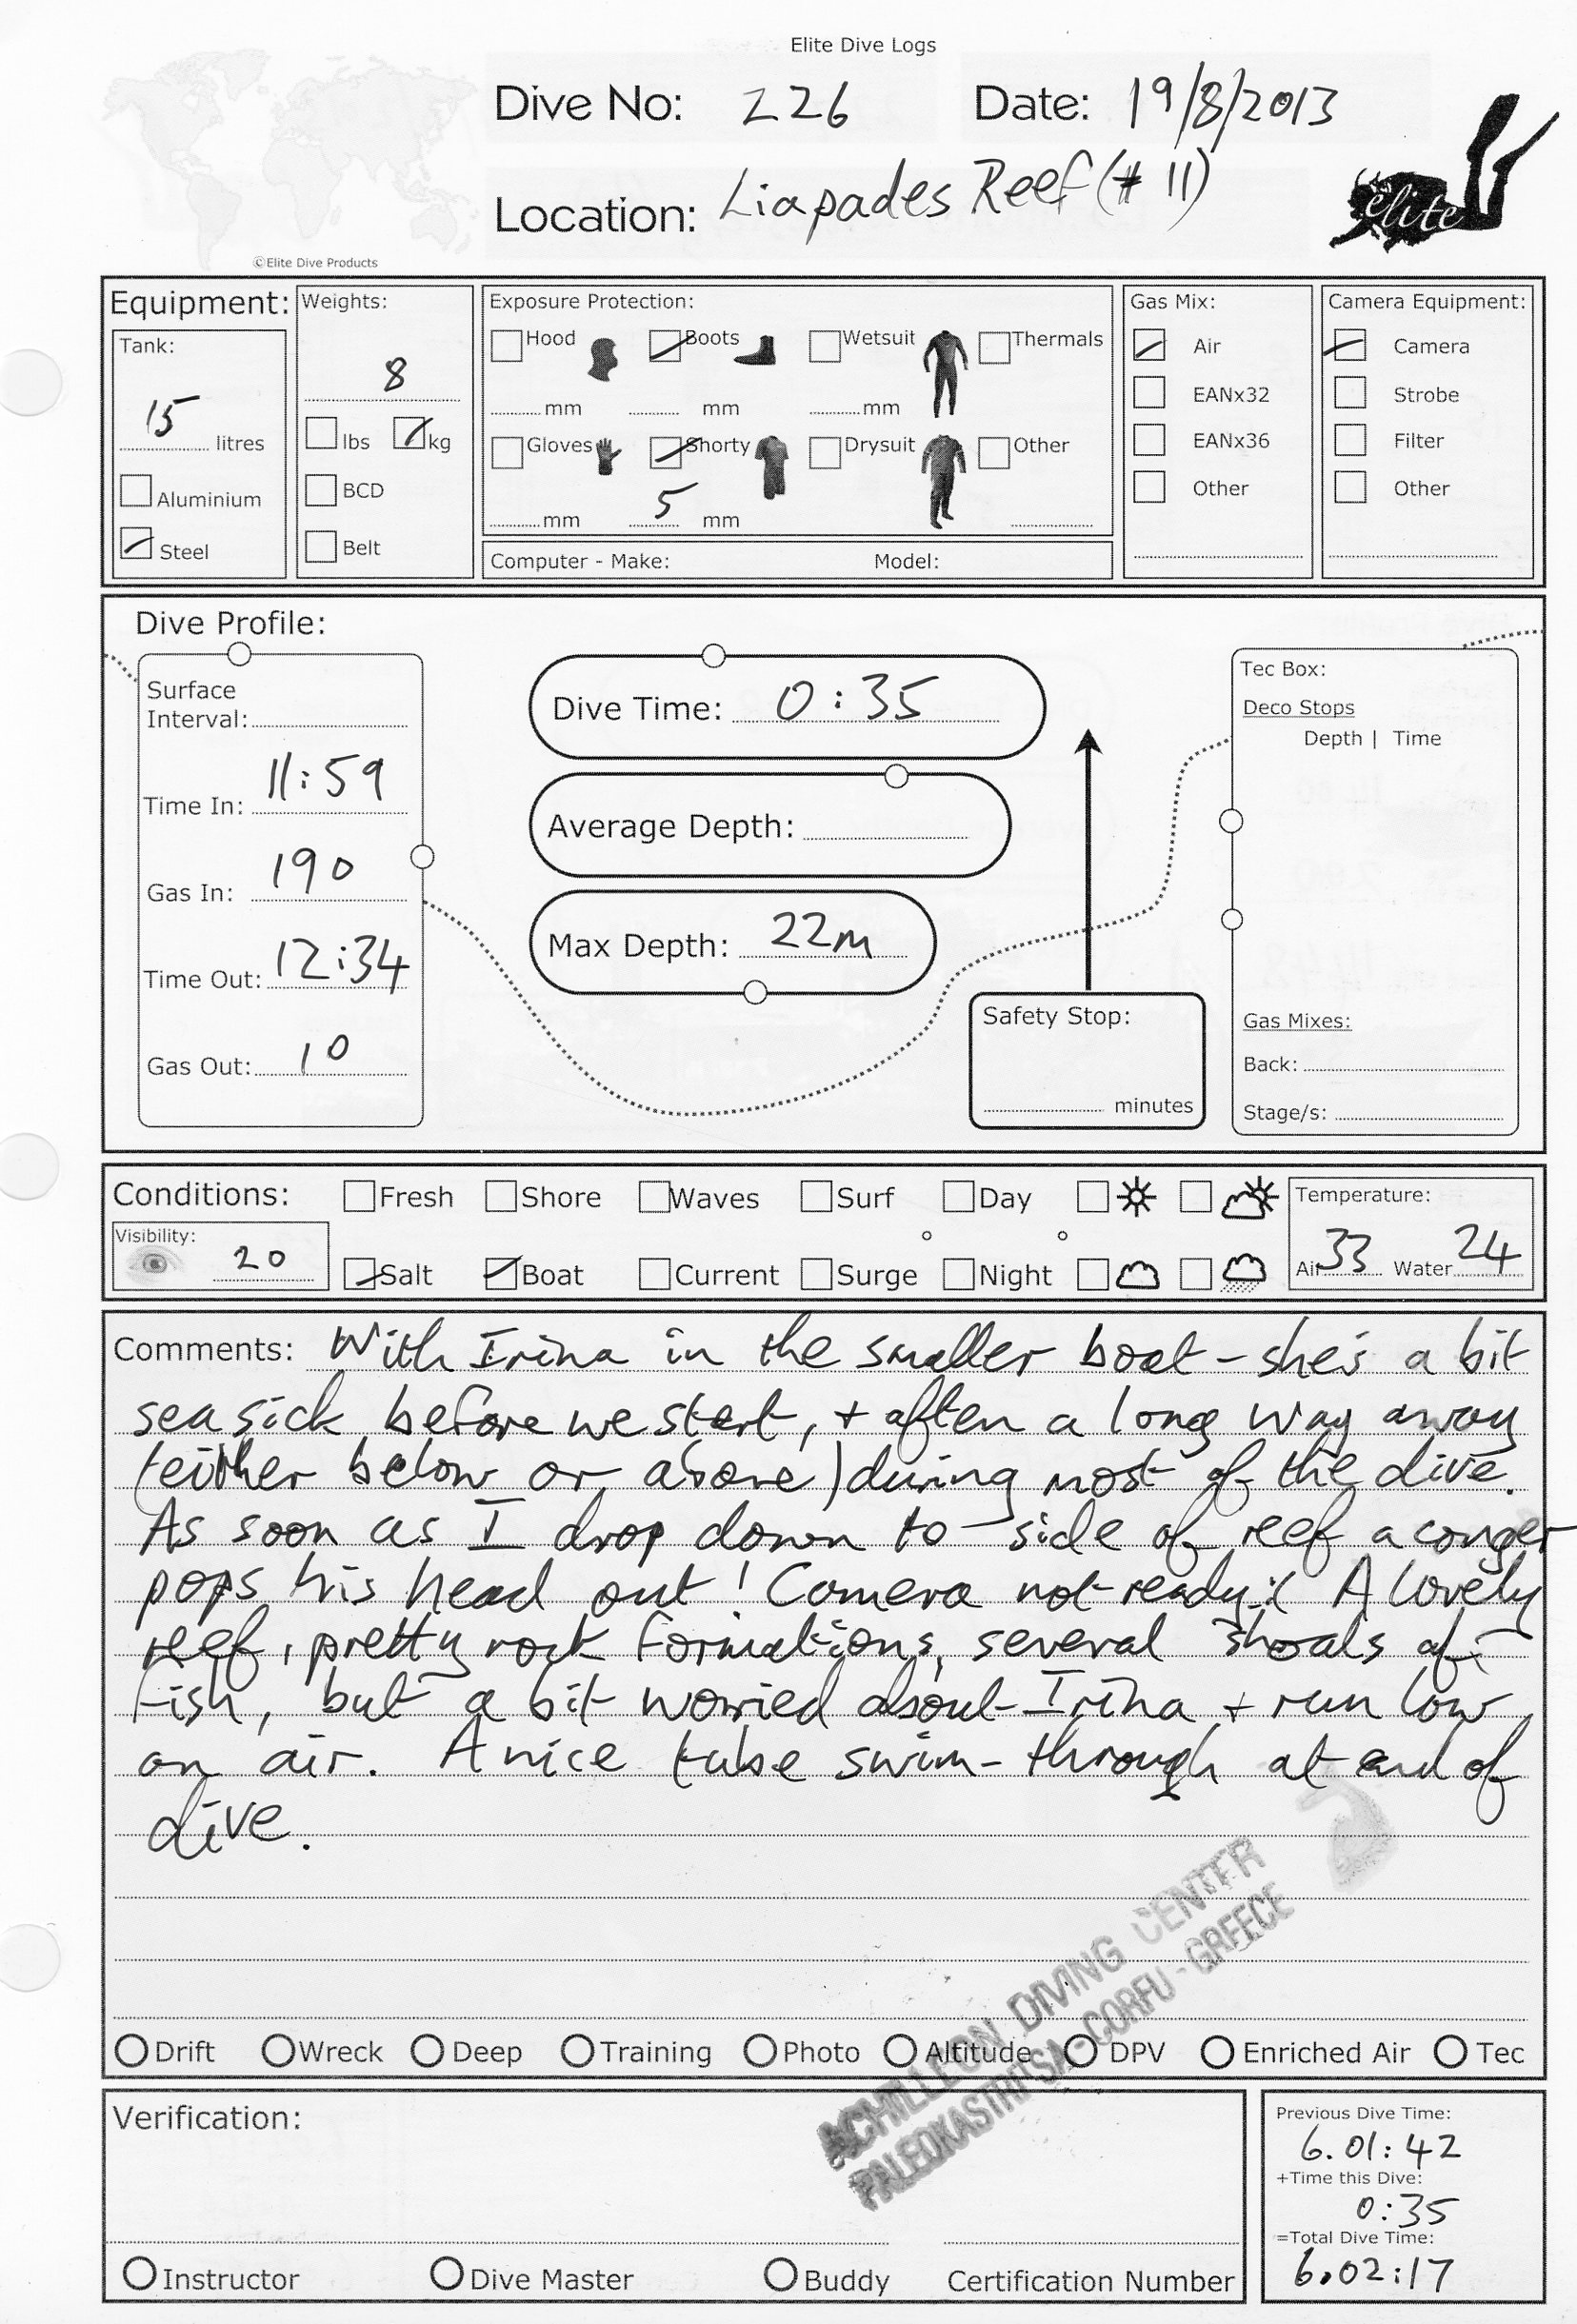 Elite Dive Logs
Dive No: 226 Date: 19/8/2013
Location: Liapades Reef (# 11)
elite
©Elite Dive Products
Equipment: Weights: Exposure Protection: Gas Mix: Camera Equipment:
Tank: Hood Boots Wetsuit Thermals Air Camera
8
15 litres mm mm mm EANx32 Strobe
lbs kg Gloves Shorty Drysuit Other EANx36 Filter
Aluminium BCD Other Other
mm 5 mm
Steel Belt Computer - Make: Model:
Dive Profile:
Surface
Interval:
Time In: 11:59
Gas In: 190
Time Out: 12:34
Gas Out: 10
Dive Time: 0:35
Average Depth:
Max Depth: 22m
Safety Stop:
minutes
Tec Box:
Deco Stops
Depth | Time
Gas Mixes:
Back:
Stage/s:
Conditions: Fresh Shore Waves Surf Day Temperature:
Visibility: 20 Salt Boat Current Surge Night Air 33 Water 24
Comments: With Irina in the smaller boat - she's a bit
seasick before we start, + often a long way away
(either below or above) during most of the dive.
As soon as I drop down to side of reef a conger
pops his head out! Camera not ready :( A lovely
reef, pretty rock formations, several shoals of
fish, but a bit worried about Irina + run low
on air. A nice tube swim-through at end of
dive.
Drift Wreck Deep Training Photo Altitude DPV Enriched Air Tec
ACHILLEON DIVING CENTER
PALEOKASTRITSA - CORFU - GREECE
Verification:
Instructor Dive Master Buddy Certification Number
Previous Dive Time:
6.01:42
+Time this Dive:
0:35
=Total Dive Time:
6.02:17